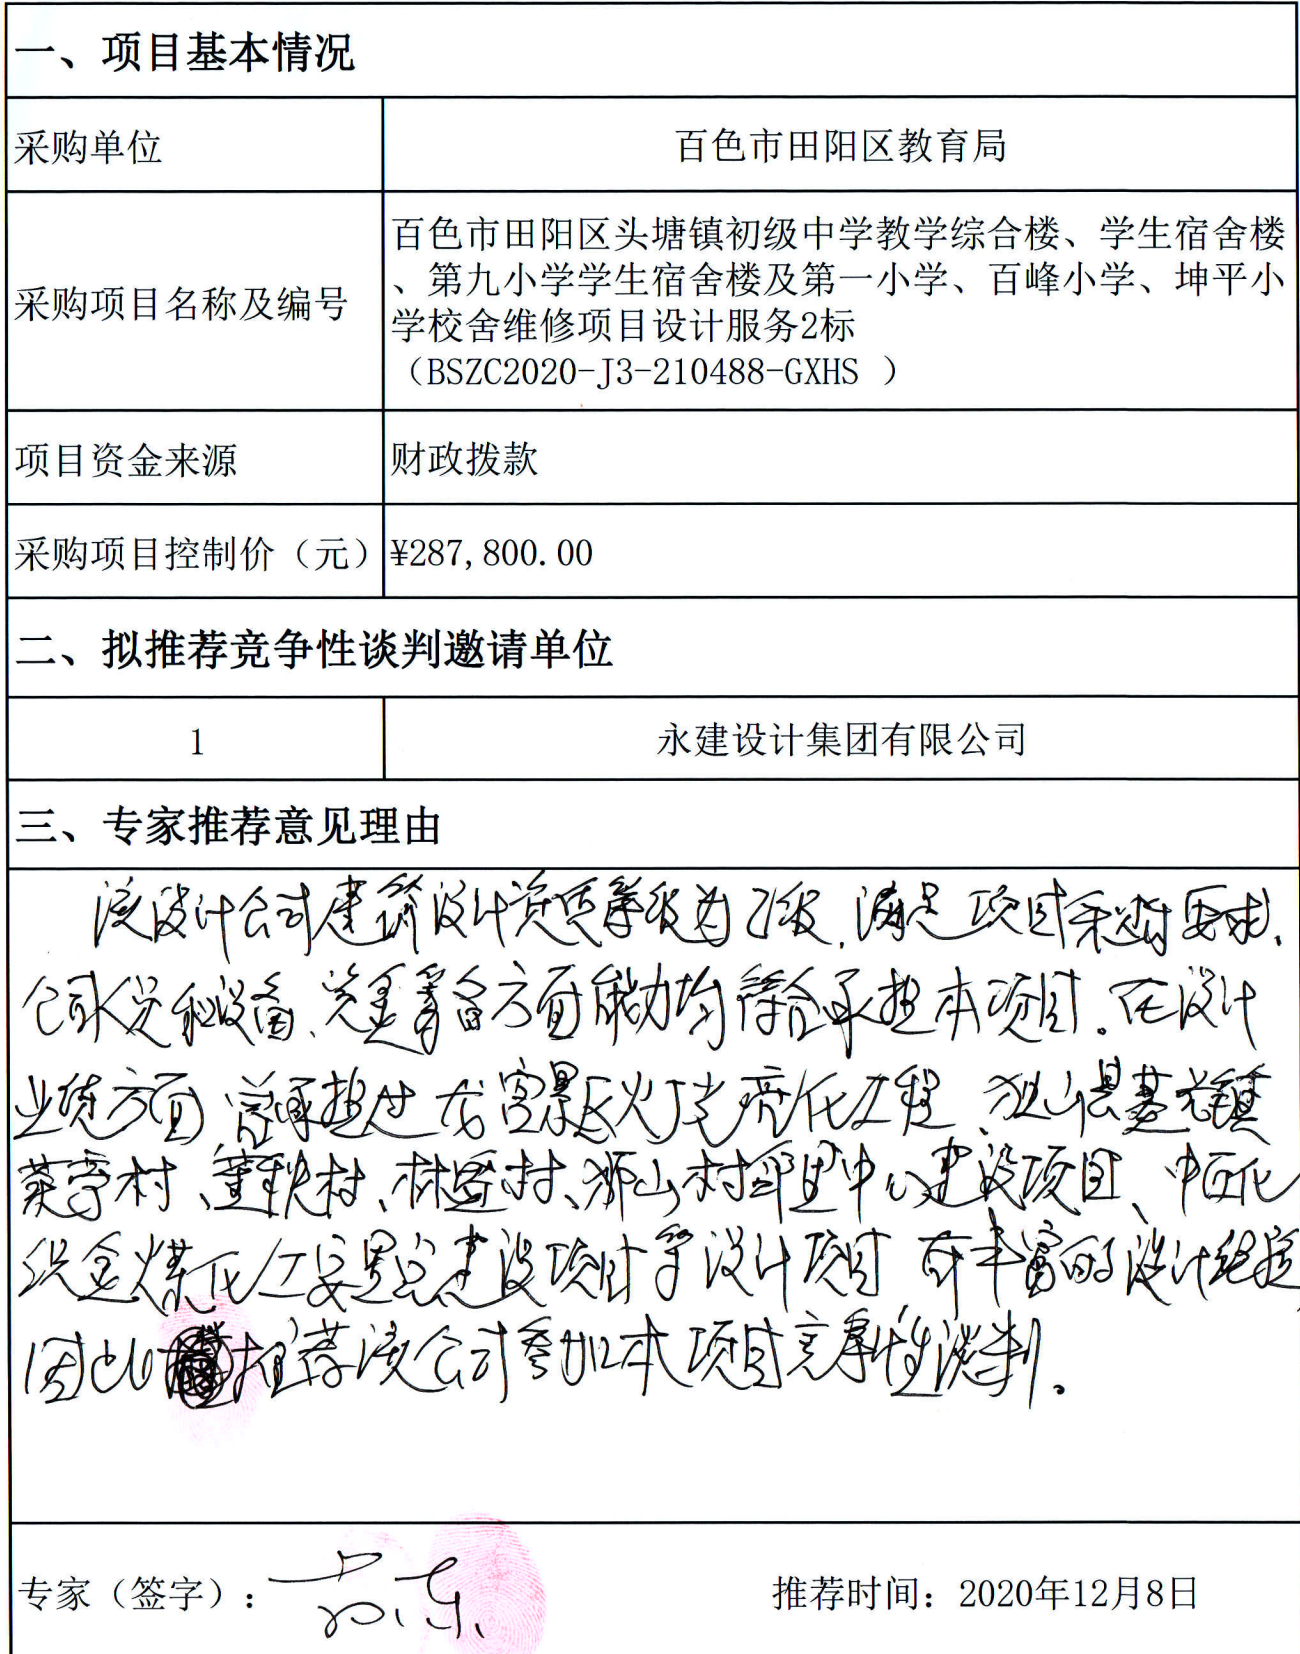 一、项目基本情况
采购单位
百色市田阳区教育局
采购项目名称及编号
百色市田阳区头塘镇初级中学教学综合楼、学生宿舍楼
、第九小学学生宿舍楼及第一小学、百峰小学、坤平小
学校舍维修项目设计服务2标
（BSZC2020-J3-210488-GXHS ）
项目资金来源
财政拨款
采购项目控制价（元）
¥287,800.00
二、拟推荐竞争性谈判邀请单位
1
永建设计集团有限公司
三、专家推荐意见理由
该设计公司建筑设计资质等级为乙级，满足项目采购要求，
公司人员和设备、资金等各方面能力均符合承担本项目。在设计
业绩方面，曾承担过龙宫景区灯光亮化工程、独山县基长镇
村、村、村、狮山村中心建设项目、中石化
织金煤化工安置点建设项目等设计项目，有丰富的设计经验，
因此推荐该公司参加本项目竞争性谈判。
专家（签字）：
推荐时间：2020年12月8日